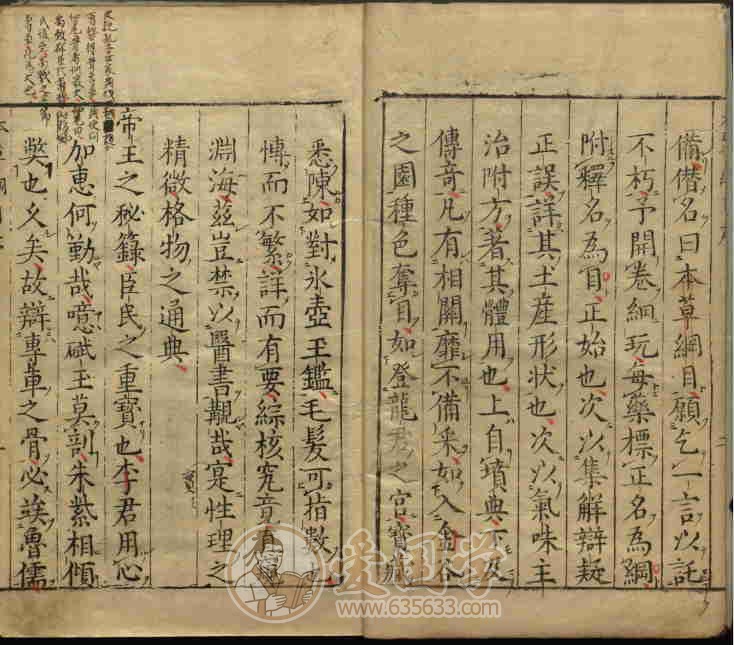 備僭名曰本草綱目願乞一言以託
不朽予開卷細玩每藥標正名為綱
附釋名為目正始也次以集解辯疑
正誤詳其土産形狀也次以氣味主
治附方著其體用也上自墳典下及
傳奇凡有相關靡不備采如入金谷
之園種色奪目如登龍君之宮寳藏
悉陳如對氷壺玉鑑毛髮可指數也
愽而不繁詳而有要綜核究竟直
淵海茲豈禁以醫書覯哉寔性理之
精微格物之通典
帝王之秘籙臣民之重寶也李君用心
加惠何勤哉噫碔玉莫剖朱紫相傾
獘也乆矣故辯專車之骨必竢魯儒
爱国学
www.635633.com